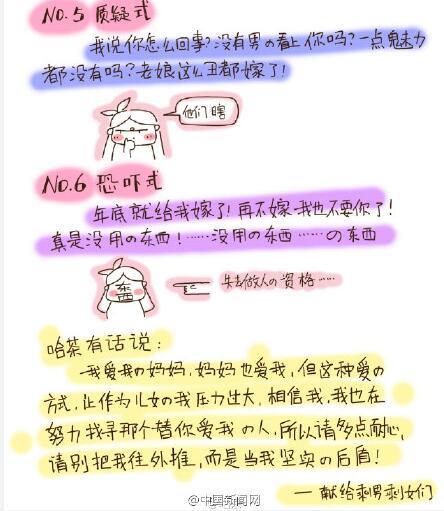 NO.5 质疑式
我说你怎么回事?没有男の看上你吗?一点魅力
都没有吗?老娘这么丑都嫁了!
他们瞎
NO.6 恐吓式
年底就给我嫁了!再不嫁我也不要你了!
真是没用の东西!……没用の东西……の东西
东西
失去做人の资格……
哈茶有话说:
我爱我の妈妈,妈妈也爱我,但这种爱の
方式,让作为儿女の我压力过大,相信我,我也在
努力找寻那个替你爱我の人,所以请多点耐心,
请别把我往外推,而是当我坚实の后盾!
——献给剩男剩女们
@中国新闻网